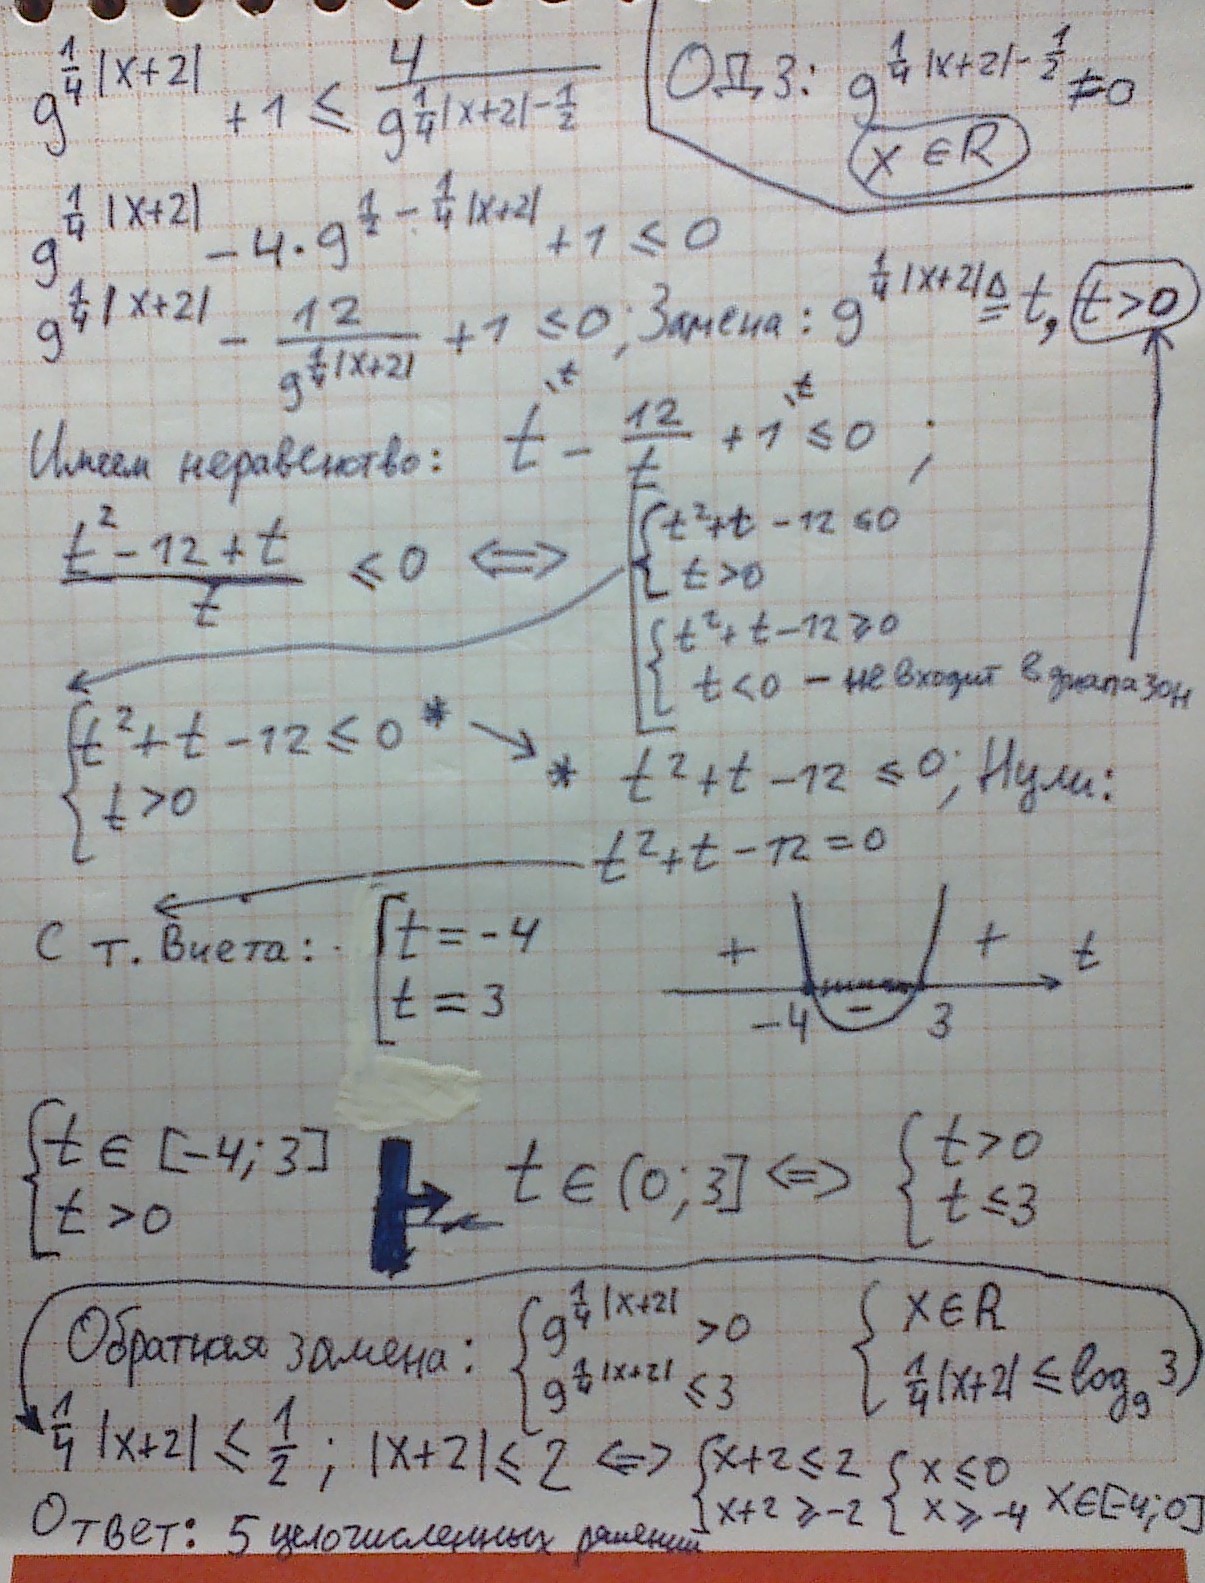 9^{\frac{1}{4}|x+2|} + 1 ≤ \frac{4}{9^{\frac{1}{4}|x+2|-\frac{1}{2}}}
ОДЗ: 9^{\frac{1}{4}|x+2|-\frac{1}{2}} ≠ 0
x ∈ R
9^{\frac{1}{4}|x+2|} - 4 · 9^{\frac{1}{2} - \frac{1}{4}|x+2|} + 1 ≤ 0
9^{\frac{1}{4}|x+2|} - \frac{12}{9^{\frac{1}{4}|x+2|}} + 1 ≤ 0; Замена: 9^{\frac{1}{4}|x+2|} ≜ t, t > 0
Имеем неравенство: t^{\t} - \frac{12}{t} + 1^{\t} ≤ 0 ;
\frac{t^2 - 12 + t}{t} ≤ 0 ⇔ [ { t^2 + t - 12 ≤ 0
t > 0
{ t^2 + t - 12 ≥ 0
t < 0 - не входит в диапазон
{ t^2 + t - 12 ≤ 0 *
t > 0
* t^2 + t - 12 ≤ 0; Нули:
t^2 + t - 12 = 0
С т. Виета: [ t = -4
t = 3
+ + t
-4 - 3
{ t ∈ [-4; 3]
t > 0
t ∈ (0; 3] ⇔ { t > 0
t ≤ 3
Обратная замена: { 9^{\frac{1}{4}|x+2|} > 0
9^{\frac{1}{4}|x+2|} ≤ 3
{ x ∈ R
\frac{1}{4}|x+2| ≤ log_9 3
\frac{1}{4}|x+2| ≤ \frac{1}{2}; |x+2| ≤ 2 ⇔ { x+2 ≤ 2
x+2 ≥ -2
{ x ≤ 0
x ≥ -4
x ∈ [-4; 0]
Ответ: 5 целочисленных решений